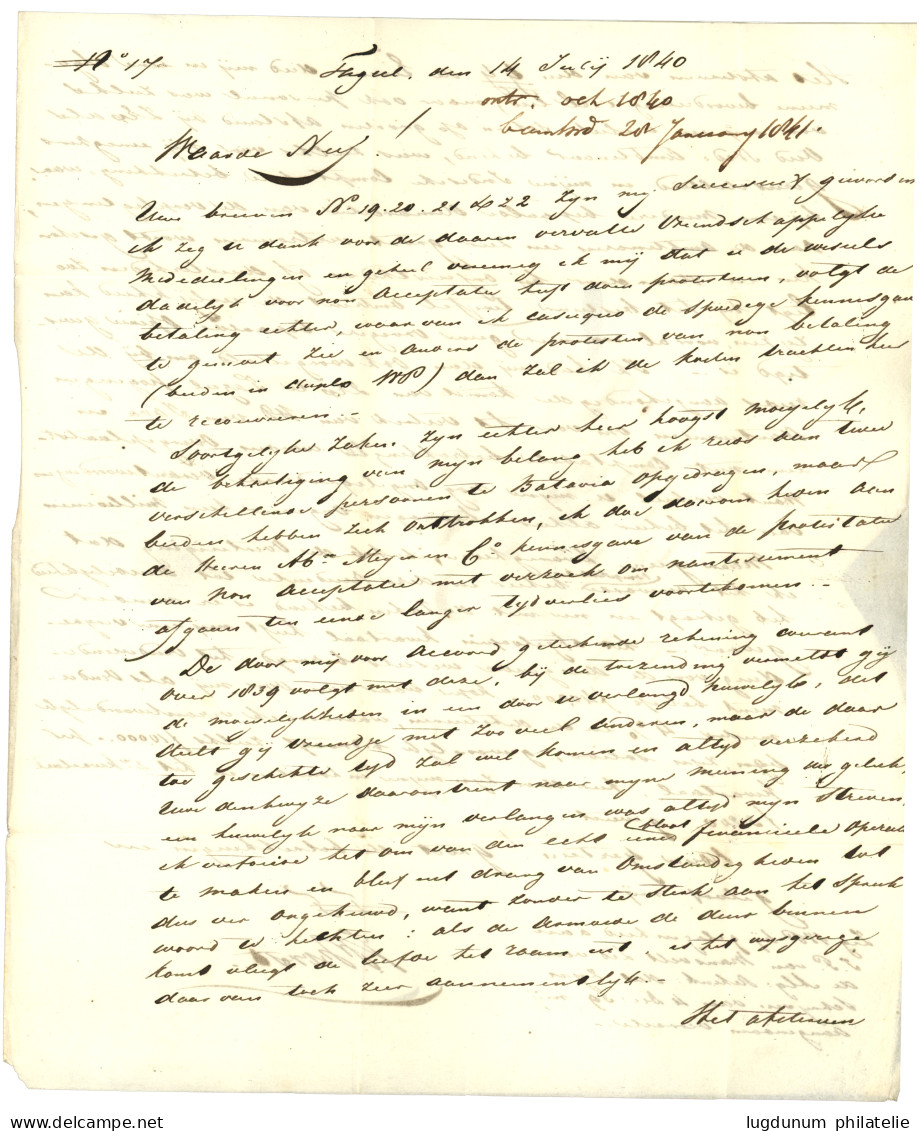 No 17
Tagal. den 14 Julij 1840
ontv. oct 1840
beantwd 28 January 1841.
Waarde Neef!
Uwe brieven No. 19. 20. 21 & 22 zyn my Successief geworden
ik zeg u dank voor de daarin vervatte Vriendschappelyke
mededeelingen en geheel vereenig ik mij dat u de wissels
dadelyk voor non Acceptatie heeft doen protesteren, volgt de
betaling echter, waar van ik casuquo de spoedige kennisgave
te gemoet zie en anders de protesten van non betaling
(beiden in duplo) dan zal ik de kosten trachten hier
te recouvreren. —
Soortgelyke zaken zyn echter hier hoogst moeyelyk,
de behartiging van myn belang heb ik reeds aan twee
verschillende persoonen te Batavia opgedragen, maar
beiden hebben zich onttrokken, ik doe daarom heden aan
de Heeren Meyer en Co. kennisgave van de protestatie
van Non Acceptatie met verzoek om nantissement
af gaan ten einde langer tydverlies voortekomen. —
De door mij voor Accoord geteekende rekening courant
over 1839 volgt met deze, bij de toezending vermeldt gij
de moeyelykheden in een door u verlangd huwelyk, dit
deelt gij vriendje met zoo veel anderen, maar de daar
toe geschikte tyd zal wel komen en altyd verzekerd
Uwe denkwyze daaromtrent naar myne meening is gelyk
een huwelyk naar mijn verlangen was altyd myn streven,
ik verfoeide het om van den echt eene bloot financieele operatie
te maken en bleef uit drang van Omstandigheden tot
dus ver ongehuwd, want zonder te sterk aan het spreek
woord te hechten: als de armoede de deur binnen
komt vliegt de liefde het raam uit, is het wysgeerige
daar van toch zeer aannemenlyk. —
Het afsterven
lugdunum philatelie